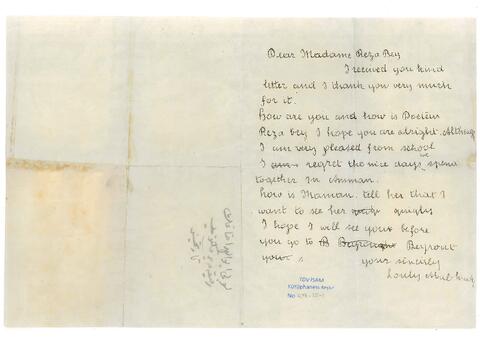 Dear Madame Reza Bey
I received you kind
letter and I thank you very much
for it.
How are you and how is Docteur
Reza bey I hope you are alright. Although
I am very pleased from school
I regret the nice days we spend
together in Amman.
how is Maman. tell her that I
want to see her
I hope I will see your before
you go to Beyrout
your sincirly
Louly
TDV İSAM
Kütüphanesi Arşivi
No